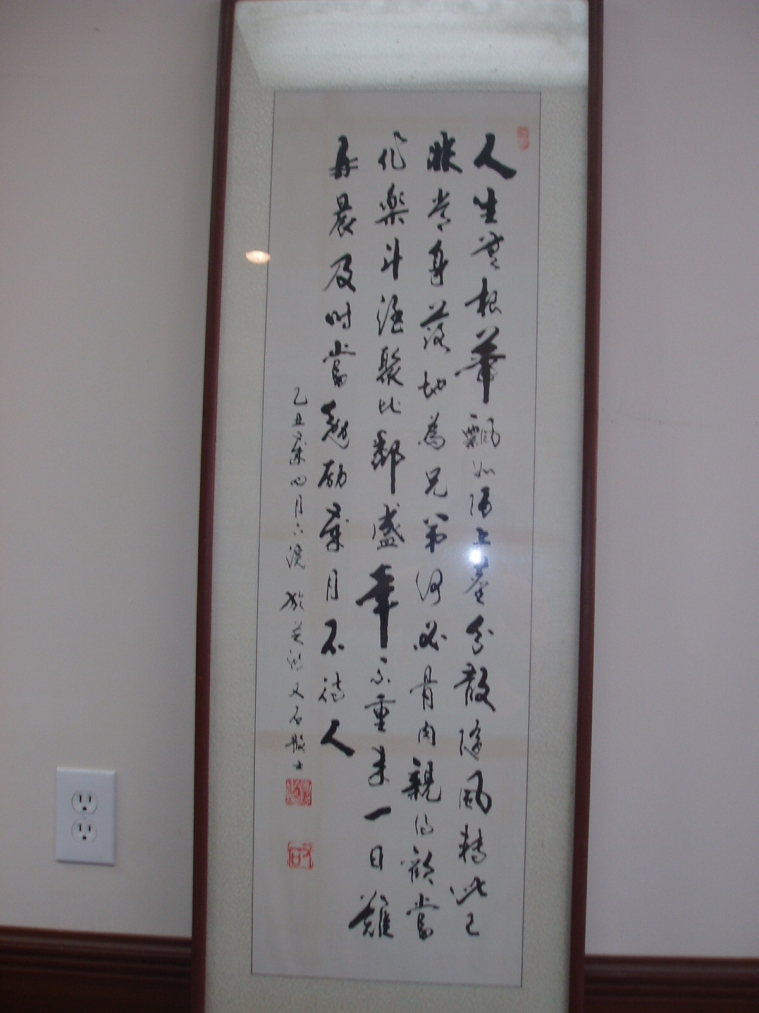 人生無根蒂飄如陌上塵分散隨風轉此已
非常身落地為兄弟何必骨肉親得歡當
作樂斗酒聚比鄰盛年不重來一日難
再晨及時當勉勵歲月不待人
乙丑歲四月 於 文石散士